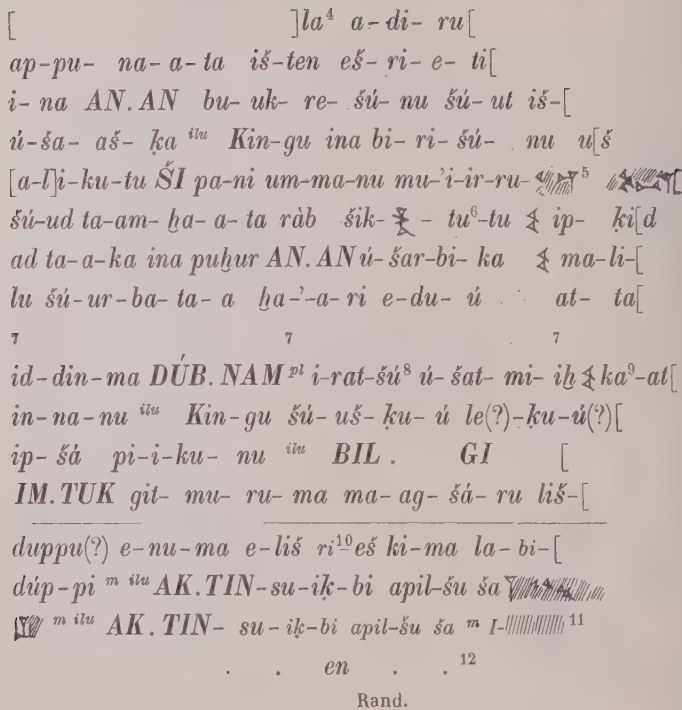 [ ]la⁴ a-di-ru[
ap-pu-na-a-ta iš-ten eš-ri-e-ti[
i-na AN.AN bu-uk-re-šú-nu šú-ut iš-[
ú-ša-aš-ḳa ilu Kin-gu ina bi-ri-šú-nu u[š
[a-l]i-ku-tu ŠI pa-ni um-ma-nu mu-’i-ir-ru- ⁵ [
šú-ud ta-am-ḫa-a-ta ràb šik- -tu⁶-tu 𒑱 ip-ki[d
ad ta-a-ka ina puḫur AN.AN ú-šar-bi-ka 𒑱 ma-li-[
lu šú-ur-ba-ta-a ḫa-’-a-ri e-du-ú at-ta[
7 7 7
id-din-ma DÚB.NAM pl i-rat-šú⁸ ú-šat-mi-iḫ 𒑱 ka⁹-at[
in-na-nu ilu Kin-gu šú-uš-ḳu-ú le(?)-ḳu-ú(?)[
ip-šá pi-i-ku-nu ilu BIL. GI [
IM.TUK git-mu-ru-ma ma-ag-šá-ru liš-[
duppu(?) e-nu-ma e-liš ri¹⁰eš ki-ma la-bi-[
dúp-pi m ilu AK.TIN-su-iḳ-bi apil-šu ša
m ilu AK.TIN-su-iḳ-bi apil-šu ša m I- ¹¹
. . en . . ¹²
Rand.